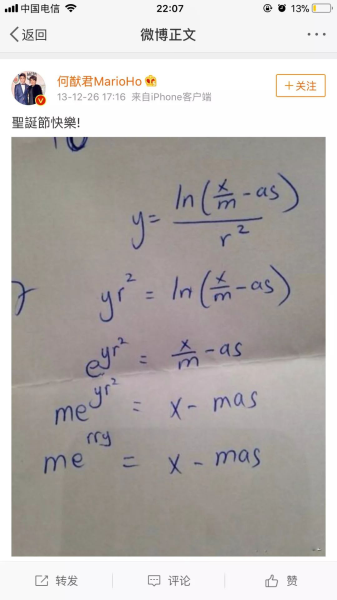 中国电信 22:07 13%
返回 微博正文 ...
何猷君MarioHo
13-12-26 17:16 来自iPhone客户端
+关注
聖誕節快樂!
y = ln(x/m - as) / r²
yr² = ln(x/m - as)
e^yr² = x/m - as
me^yr² = x - mas
me^rry = x - mas
转发 评论 赞